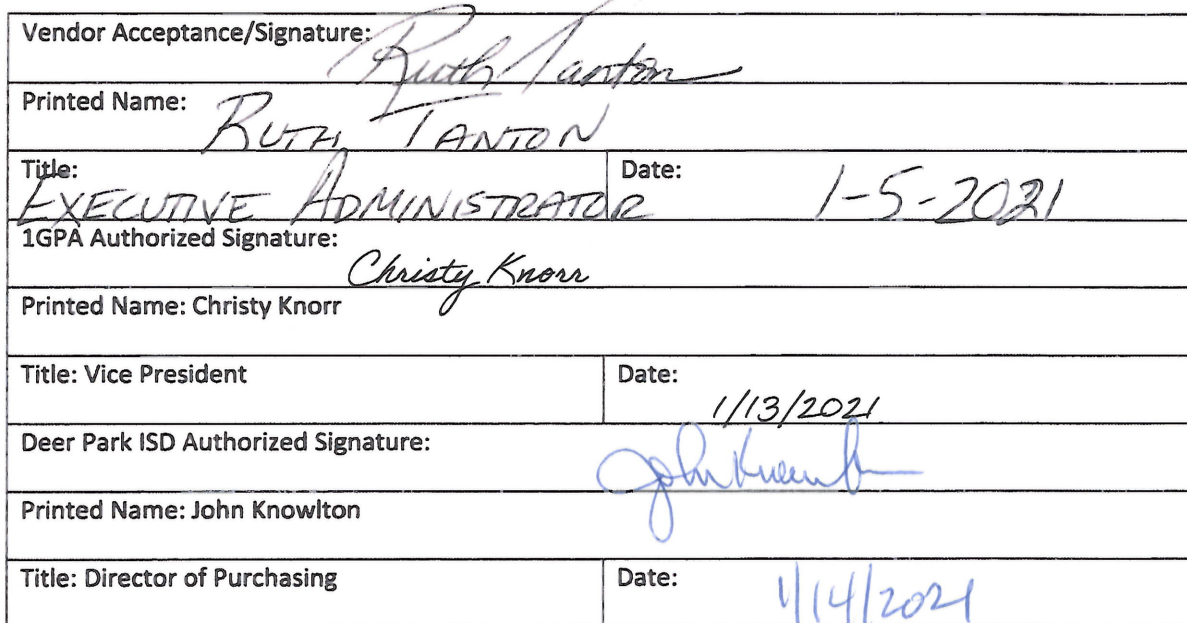 Vendor Acceptance/Signature: Ruth Tanton
Printed Name: RUTH TANTON
Title: EXECUTIVE ADMINISTRATOR Date: 1-5-2021
1GPA Authorized Signature: Christy Knorr
Printed Name: Christy Knorr
Title: Vice President Date: 1/13/2021
Deer Park ISD Authorized Signature: John Knowlton
Printed Name: John Knowlton
Title: Director of Purchasing Date: 1/14/2021